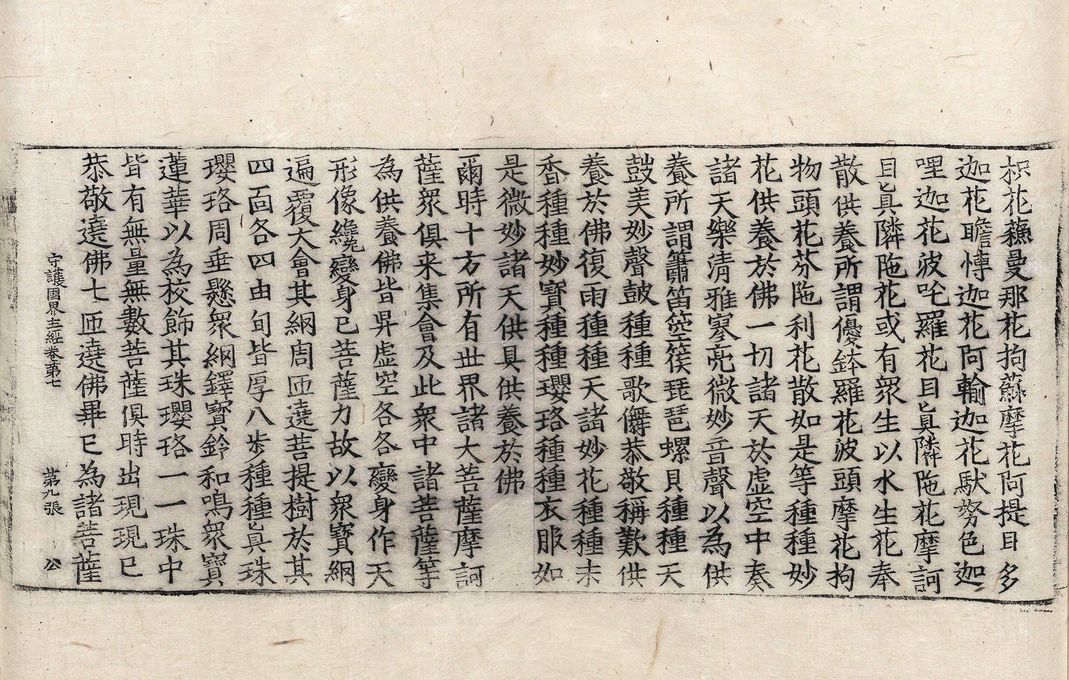 枳花蘓曼那花拘蘇摩花阿提目多
迦花瞻愽迦花阿輸迦花馱努色迦
哩迦花波吒羅花目真隣陁花摩訶
目真隣陁花或有衆生以水生花奉
散供養所謂優鉢羅花波頭摩花拘
物頭花芬陁利花散如是等種種妙
花供養於佛一切諸天於虛空中奏
諸天樂清雅寥亮微妙音聲以為供
養所謂簫笛箜篌琵琶螺貝種種天
鼓美妙聲鼓種種歌儛恭敬稱歎供
養於佛復雨種種天諸妙花種種末
香種種妙寶種種瓔珞種種衣服如
是微妙諸天供具供養於佛
爾時十方所有世界諸大菩薩摩訶
薩衆俱来集會及此衆中諸菩薩等
為供養佛皆昇虛空各各變身作天
形像纔變身已菩薩力故以衆寶網
遍覆大會其網周迊遶菩提樹於其
四面各四由旬皆厚八步種種真珠
瓔珞周垂懸衆網鐸寶鈴和鳴衆寶
蓮華以為校飾其珠瓔珞一一珠中
皆有無量無數菩薩俱時出現現已
恭敬遶佛七迊遶佛畢已為諸菩薩
守護國界主經卷第七 第九張 公